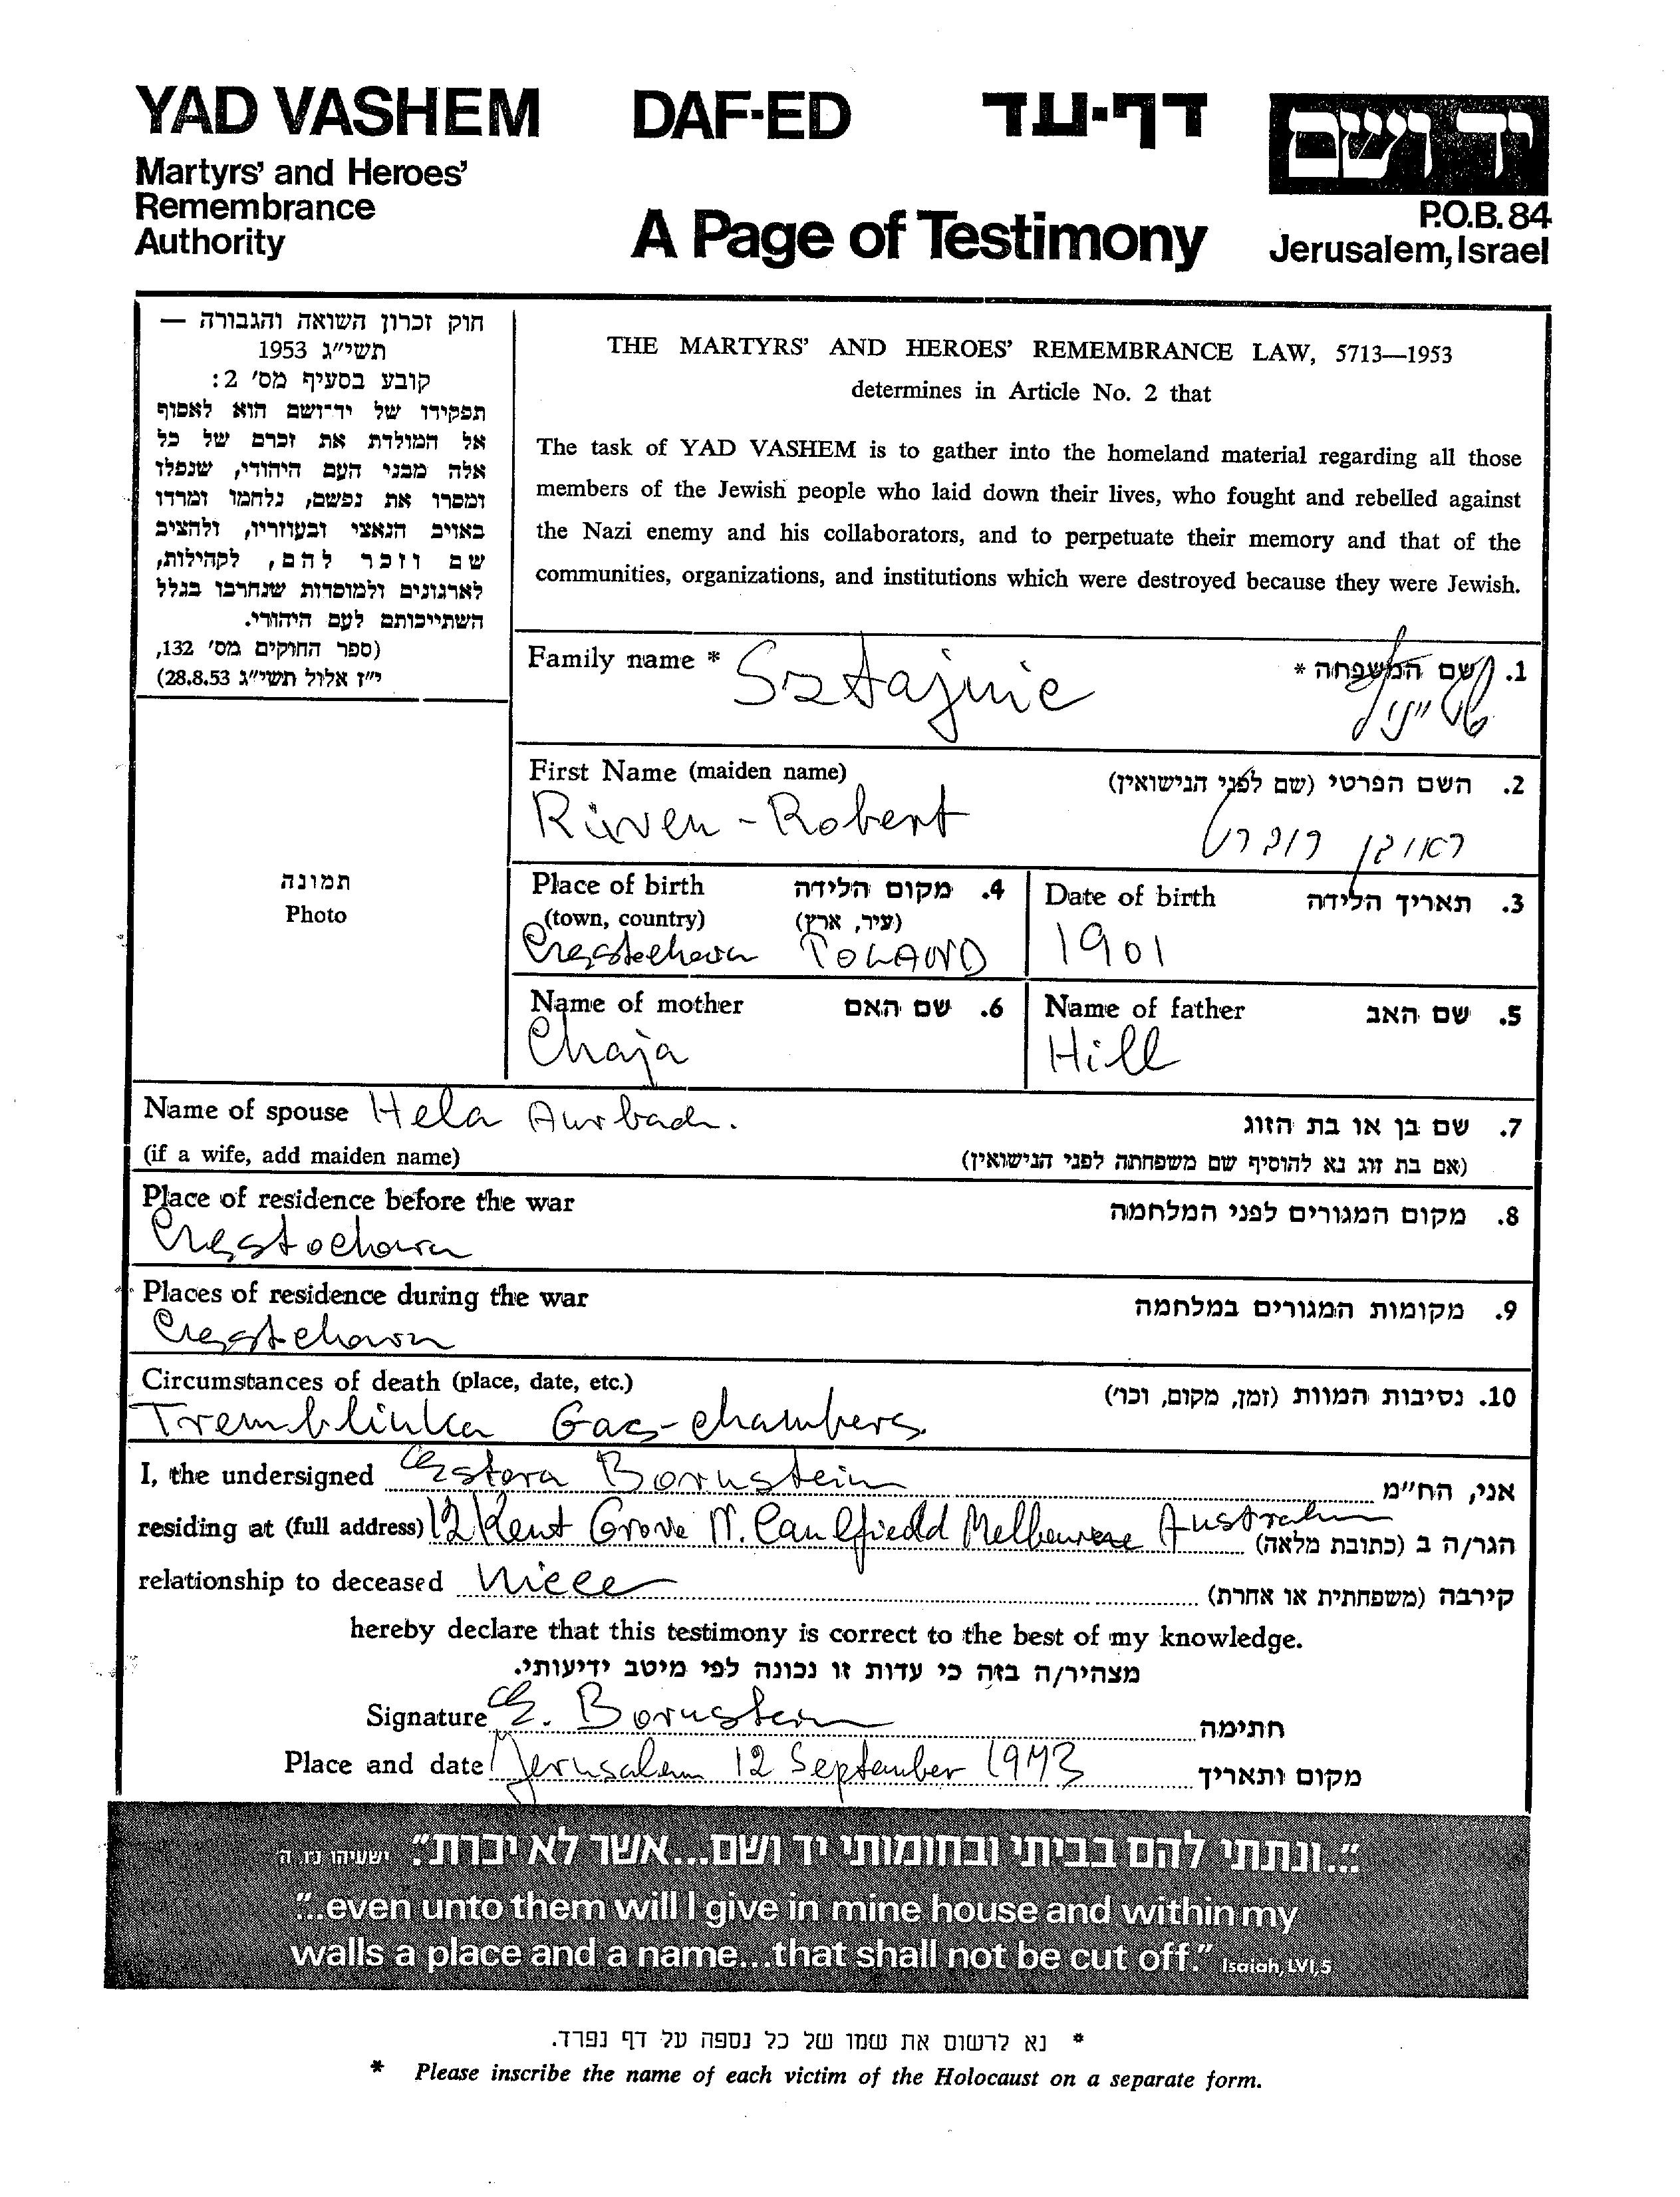 YAD VASHEM DAF-ED דף-עד יד ושם
Martyrs' and Heroes'
Remembrance
Authority
A Page of Testimony
P.O.B. 84
Jerusalem, Israel
חוק זכרון השואה והגבורה —
תשי״ג 1953
קובע בסעיף מס׳ 2:
תפקידו של יד־ושם הוא לאסוף
אל המולדת את זכרם של כל
אלה מבני העם היהודי, שנפלו
ומסרו את נפשם, נלחמו ומרדו
באויב הנאצי ובעוזריו, ולהציב
שם וזכר להם, לקהילות,
לארגונים ולמוסדות שנחרבו בגלל
השתייכותם לעם היהודי.
(ספר החוקים מס׳ 132,
י״ז אלול תשי״ג 28.8.53)
THE MARTYRS' AND HEROES' REMEMBRANCE LAW, 5713—1953
determines in Article No. 2 that
The task of YAD VASHEM is to gather into the homeland material regarding all those
members of the Jewish people who laid down their lives, who fought and rebelled against
the Nazi enemy and his collaborators, and to perpetuate their memory and that of the
communities, organizations, and institutions which were destroyed because they were Jewish.
Family name * Sztajnic 1. שם המשפחה *
First Name (maiden name) 2. השם הפרטי (שם לפני הנישואין)
Ruven - Robert ראובן רוברט
תמונה
Photo
Place of birth 4. מקום הלידה
(town, country) (עיר, ארץ)
POLAND
Date of birth 3. תאריך הלידה
1901
Name of mother 6. שם האם
Chaja
Name of father 5. שם האב
Hill
Name of spouse Hela 7. שם בן או בת הזוג
(if a wife, add maiden name) (אם בת זוג נא להוסיף שם משפחתה לפני הנישואין)
Place of residence before the war 8. מקום המגורים לפני המלחמה
Częstochowa
Places of residence during the war 9. מקומות המגורים במלחמה
Circumstances of death (place, date, etc.) 10. נסיבות המוות (זמן, מקום, וכו׳)
Tremblinka Gas-chambers.
I, the undersigned Estera Bornstein אני, הח״מ
residing at (full address) 12 Kent Grove N. Caulfield Melbourne Australia הגר/ה ב (כתובת מלאה)
relationship to deceased Niece קירבה (משפחתית או אחרת)
hereby declare that this testimony is correct to the best of my knowledge.
מצהיר/ה בזה כי עדות זו נכונה לפי מיטב ידיעותי.
Signature E. Bornstein חתימה
Place and date Jerusalem 12 September 1973 מקום ותאריך
״...ונתתי להם בביתי ובחומותי יד ושם...אשר לא יכרת.״ ישעיהו נו, ה
"...even unto them will I give in mine house and within my
walls a place and a name...that shall not be cut off." Isaiah, LVI,5
* נא לרשום את שמו של כל נספה על דף נפרד.
* Please inscribe the name of each victim of the Holocaust on a separate form.